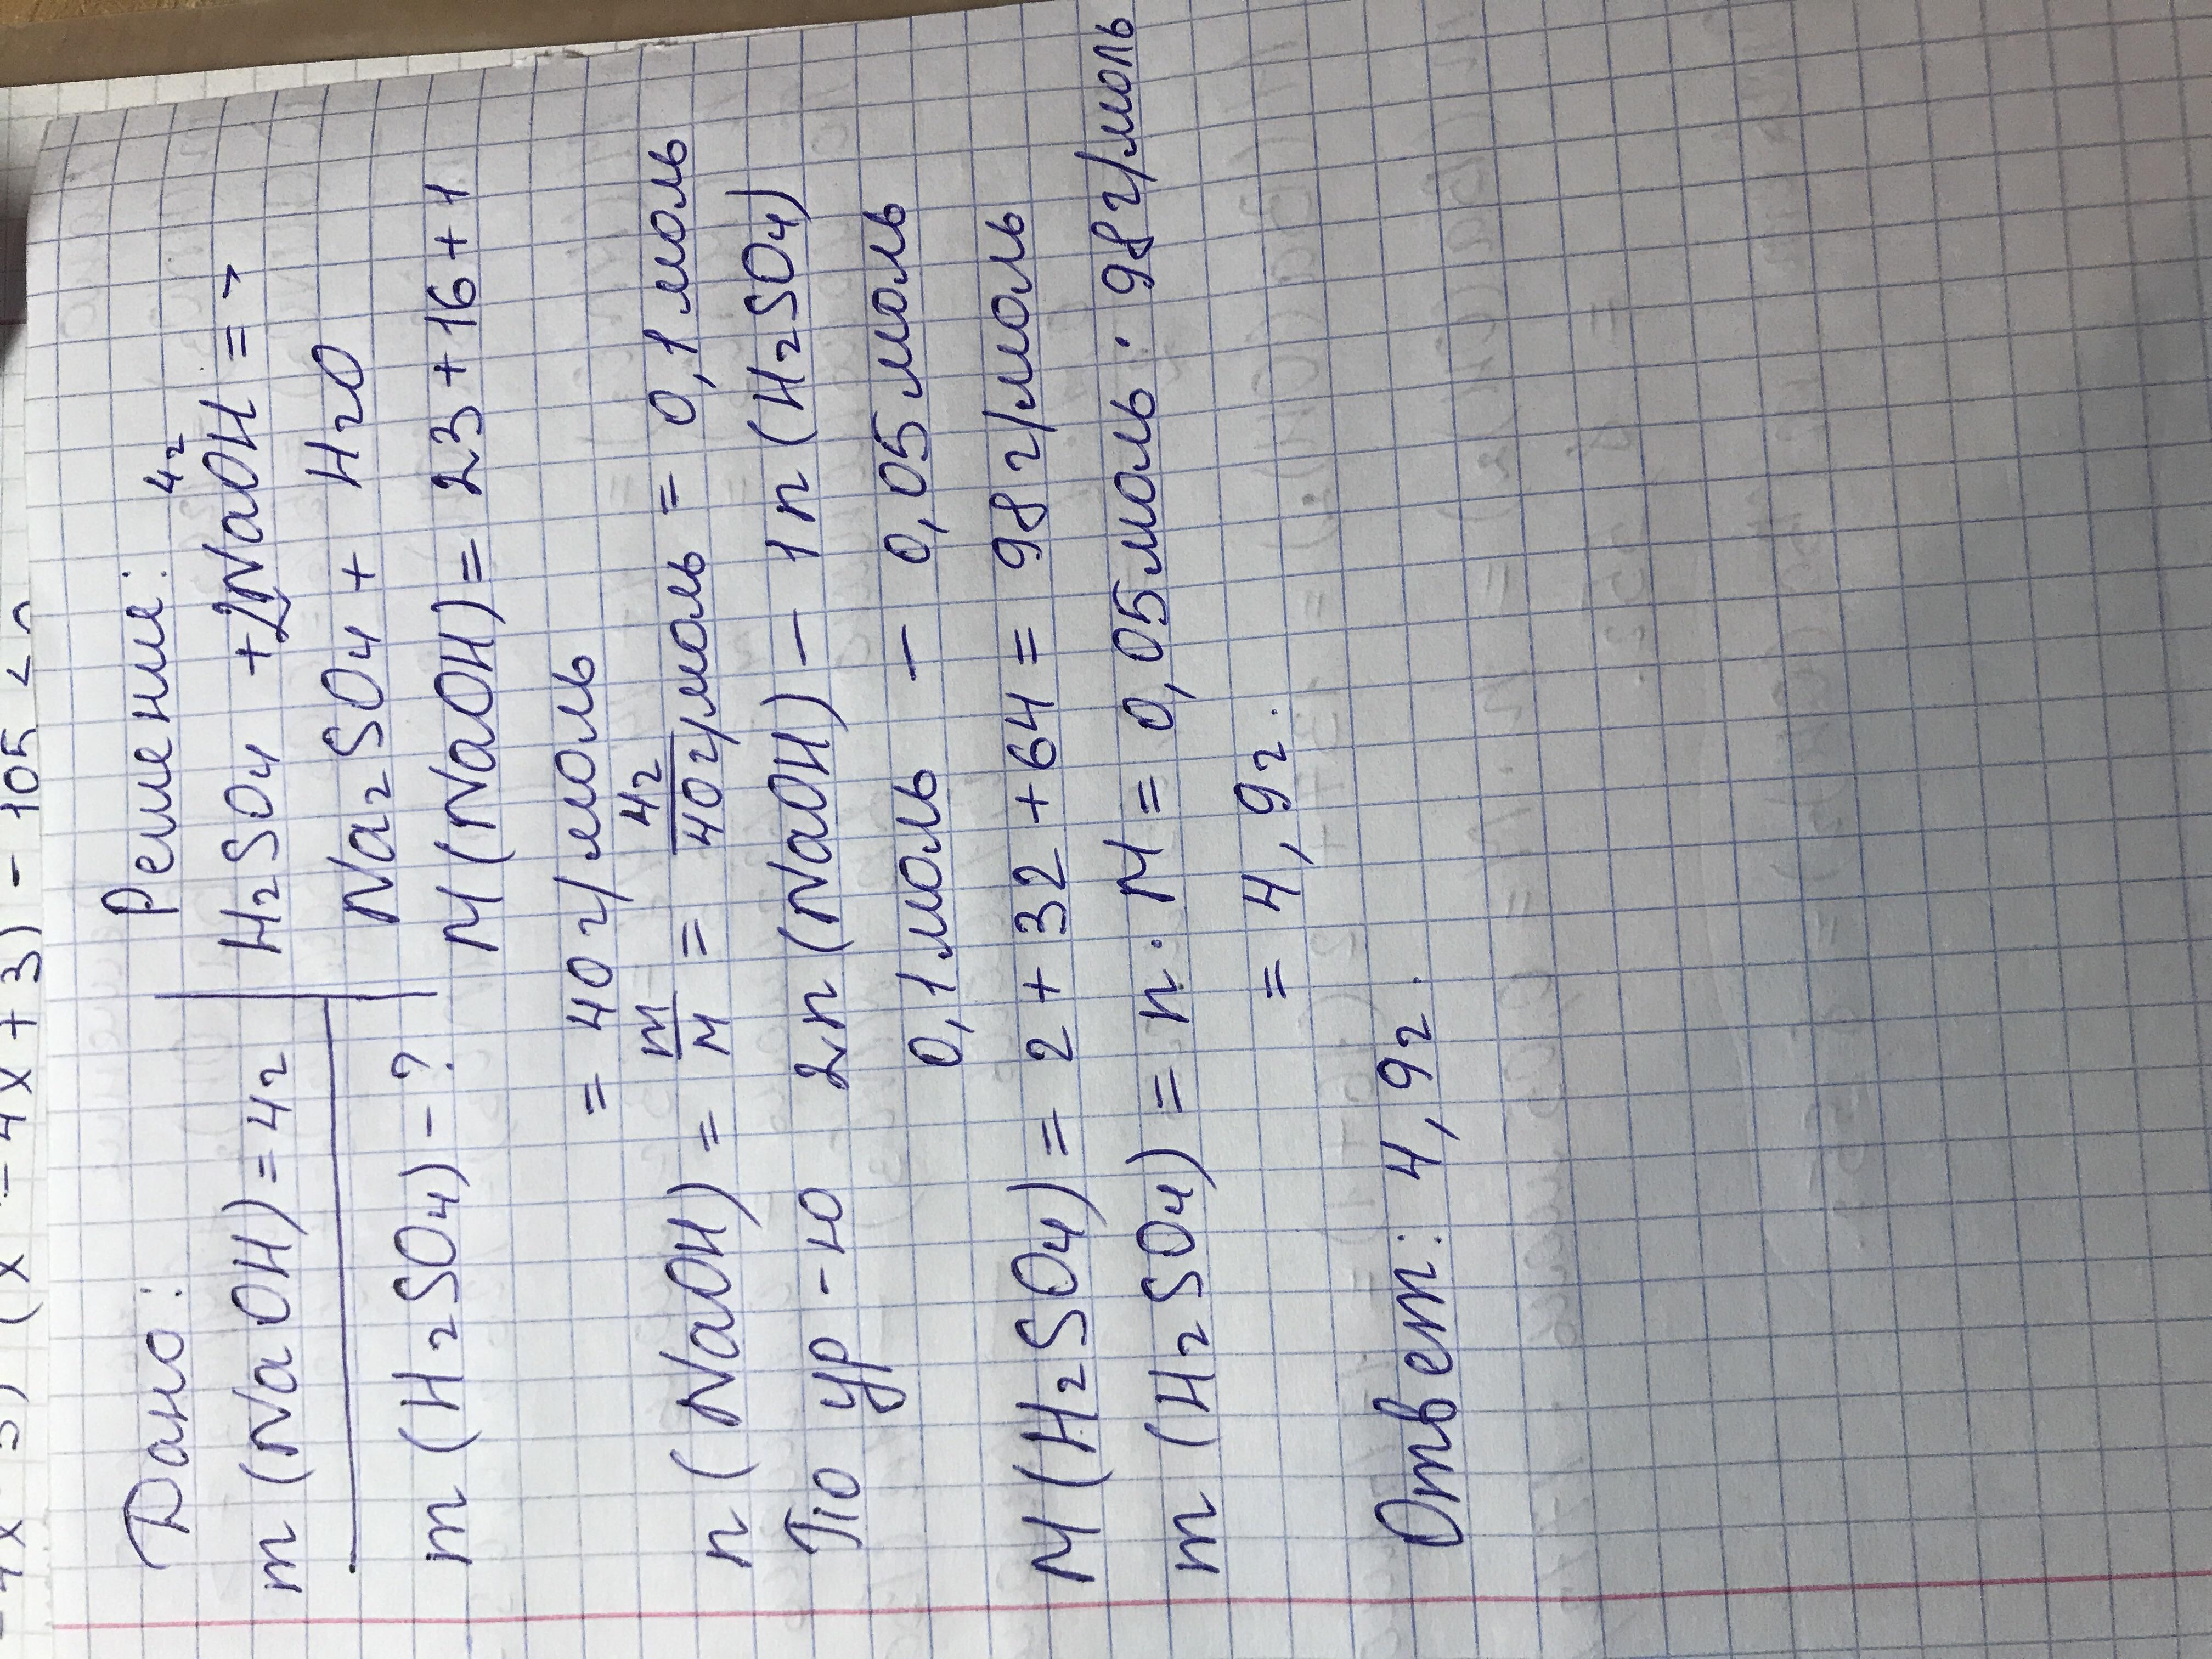 - 4x + 3) (x² - 4x + 3) - 105 <
Дано:
Решение:
m (NaOH) = 4г
4г
H₂SO₄ + 2NaOH = >
m (H₂SO₄) - ?
Na₂SO₄ + H₂O
M (NaOH) = 23 + 16 + 1
= 40 г/моль
n (NaOH) = m/M = 4г/40 г/моль = 0,1 моль
По ур - ю 2n (NaOH) - 1n (H₂SO₄)
0,1 моль - 0,05 моль
M (H₂SO₄) = 2 + 32 + 64 = 98 г/моль
m (H₂SO₄) = n · M = 0,05моль · 98 г/моль
= 4,9 г.
Ответ: 4,9 г.